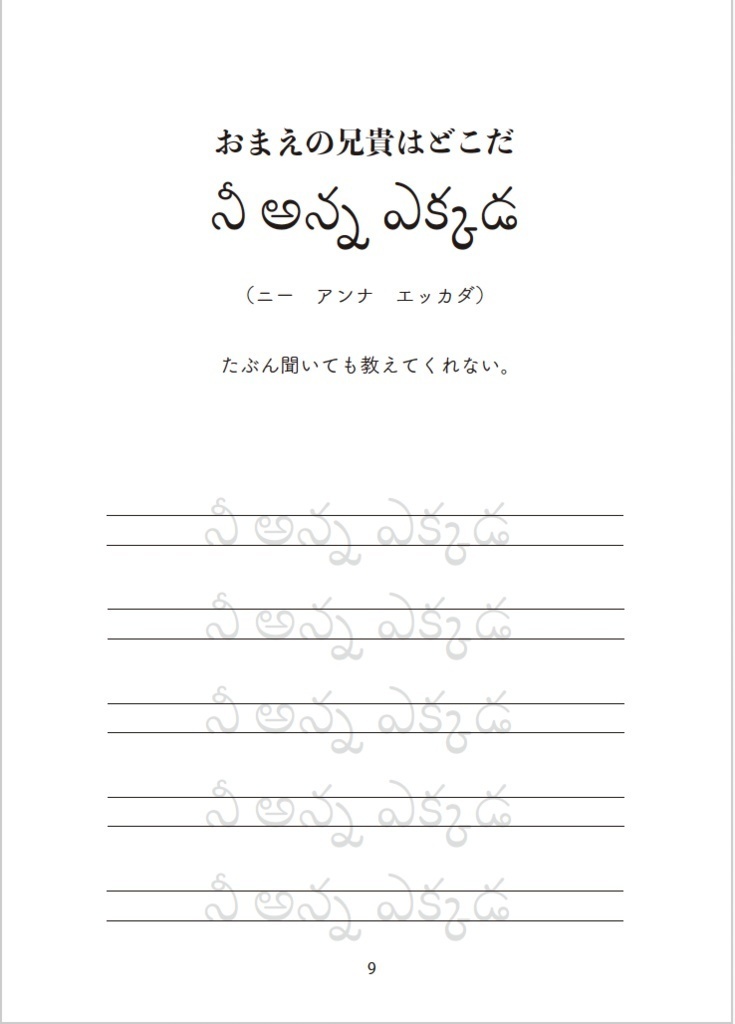 おまえの兄貴はどこだ
నీ అన్న ఎక్కడ
（ニー　アンナ　エッカダ）
たぶん聞いても教えてくれない。
నీ అన్న ఎక్కడ
నీ అన్న ఎక్కడ
నీ అన్న ఎక్కడ
నీ అన్న ఎక్కడ
నీ అన్న ఎక్కడ
9